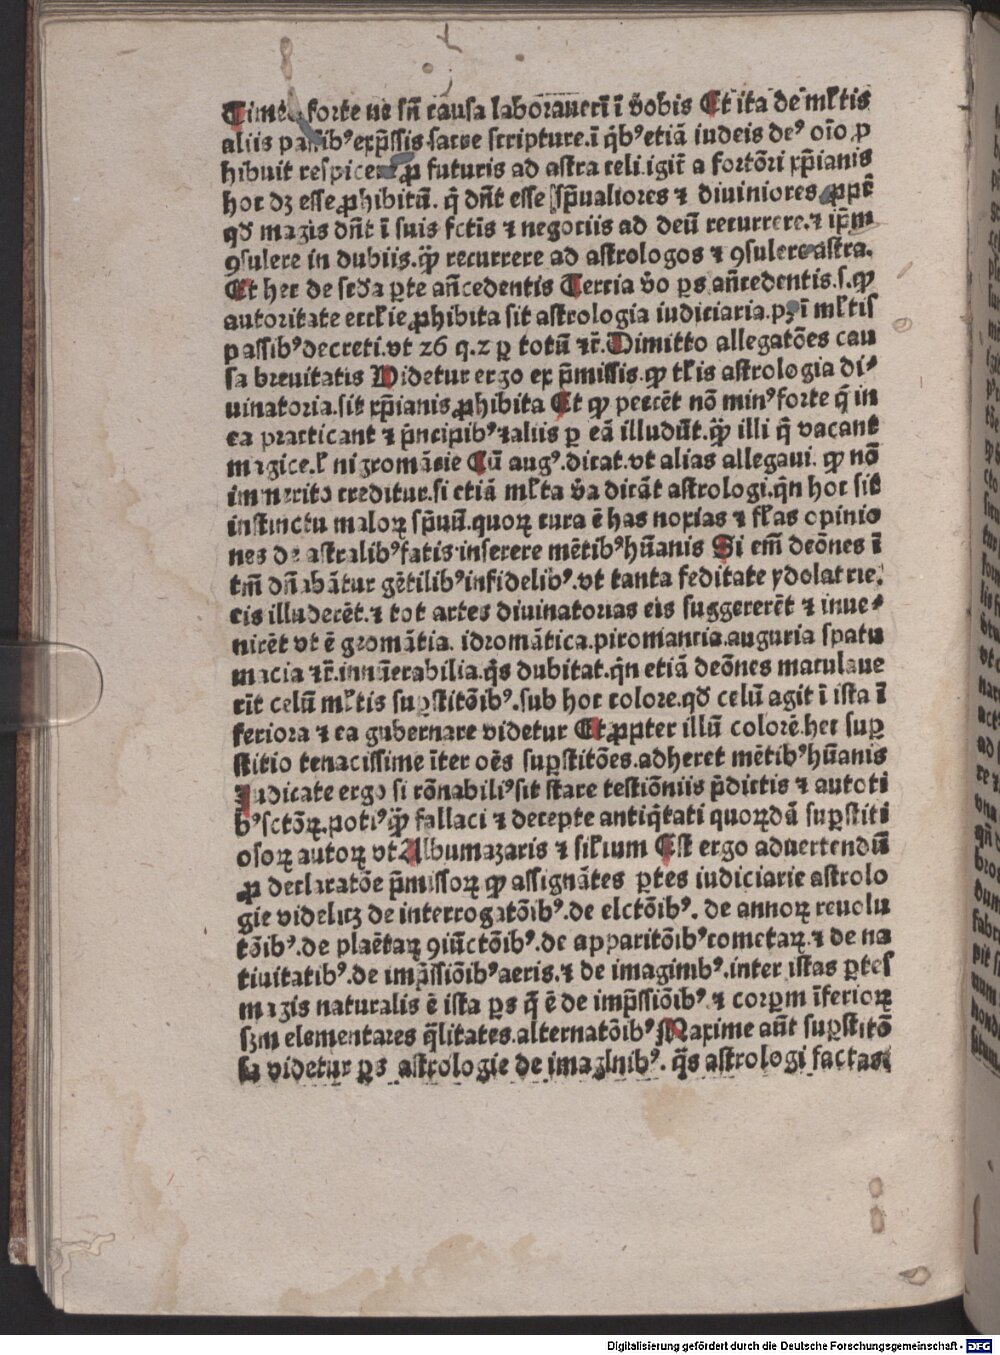 Timeo forte ne sñ causa laborauerī ī v̄obis Et ita de mƚtis
aliis passib⁹ exp̄ssis sacre scripture.ī q̄b⁹ etiā iudeis de⁹ oīo ꝓ
hibuit respicere ꝓ futuris ad astra celi.igit̄ a fortōri xp̄ianis
hoc dꝫ esse ꝓhibitū. q̄ dn̄t esse sp̄ualiores ⁊ diuiniores ꝓpt̄
qd̄ magis dn̄t ī suis fctīs ⁊ negociis ad deū recurrere.⁊ ip̄m
ꝯsulere in dubiis.ꝙ̄ recurrere ad astrologos ⁊ ꝯsulere astra.
Et hec de scd̄a ꝑte an̄cedentis Tercia v̄o ꝑs an̄cedentis.s.ꝙ
autoritate eccƚie ꝓhibita sit astrologia iudiciaria.pꝫ ī mƚtis
passib⁹ decreti.vt 26 q.2 ꝑ totū ⁊c̄. Dimitto allegatōes cau
sa breuitatis Videtur ergo ex p̄missis.ꝙ tƚis astrologia di⸗
uinatoria.sit xp̄ianis ꝓhibita Et ꝙ peccēt nō min⁹ forte q̄ in
ea practicant ⁊ p̄ncipib⁹ ⁊ aliis ꝑ eā illudūt.ꝙ̄ illi q̄ vacant
magice.ƚ nigromācie Cū aug⁹.dicat.vt alias allegaui. ꝙ nō
immerito creditur.si etiā mƚta v̄a dicāt astrologi.q̄n hoc sit
instinctu maloꝝ sp̄uū.quoꝝ cura ē has noxias ⁊ fƚas opinio
nes de astralib⁹ fatis inserere mētib⁹ hūanis Si em̄ deōnes ī
tm̄ dn̄abātur gētilib⁹ infidelib⁹.vt tanta feditate ydolatrie.
eis illuderēt.⁊ tot artes diuinatorias eis suggererēt ⁊ inue⸗
nirēt vt ē gromātia. idromātica.piromancia.auguria spatu
macia ⁊c̄.innūerabilia.q̄s dubitat.q̄n etiā deōnes maculaue
rīt celū mƚtis suꝑstitōib⁹.sub hoc colore.qd̄ celū agit ī ista ī
feriora ⁊ ea gubernare videtur Et ꝓpter illū colorē.hec suꝑ
stitio tenacissime īter oēs suꝑstitōes.adheret mētib⁹ hūanis
Iudicate ergo si rōnabili⁹ sit stare testiōniis p̄dictis ⁊ autoti
b⁹ sctōꝝ.poti⁹ ꝙ̄ fallaci ⁊ decepte antiq̄tati quoꝝdā suꝑstiti
osoꝝ autoꝝ vt Albumazaris ⁊ siƚium Est ergo aduertendū
ꝓ declaratōe p̄missoꝝ ꝙ assignātes ꝑtes iudiciarie astrolo
gie videlicꝫ de interrogatōib⁹.de elctōib⁹. de annoꝝ reuolu
tōib⁹.de plaētaꝝ ꝯiūctōib⁹.de apparitōib⁹ cometaꝝ.⁊ de na
tiuitatib⁹.de imp̄ssiōib⁹ aeris.⁊ de imaginib⁹.inter istas ꝑtes
magis naturalis ē ista ꝑs q̄ ē de imp̄ssiōib⁹ ⁊ corꝑm īferioꝝ
sꝫm elementares q̄litates.alternatōib⁹ Maxime aūt suꝑstitō
sa videtur ꝑs astrologie de imaginib⁹. q̄s astrologi factas
Digitalisierung gefördert durch die Deutsche Forschungsgemeinschaft - DFG